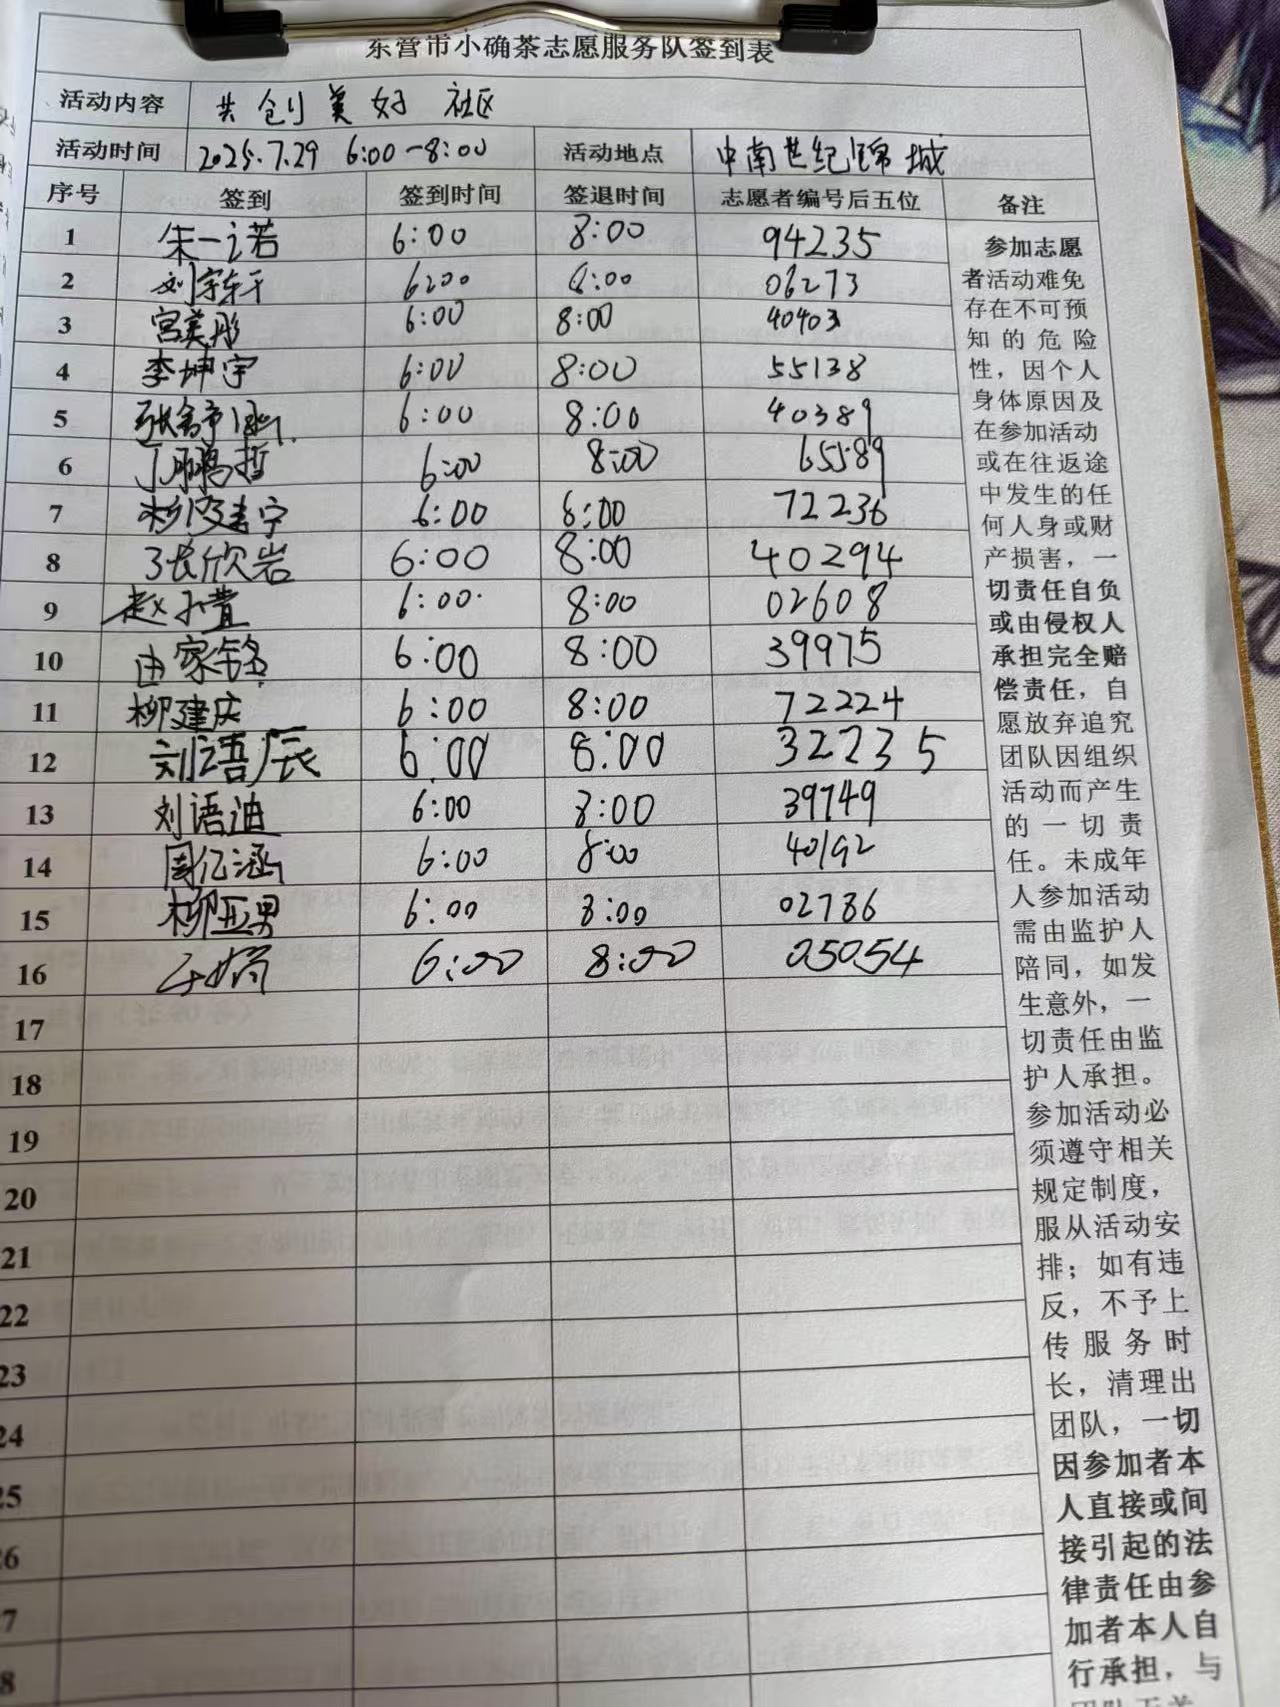 东营市小确茶志愿服务队签到表
活动内容 共创美好 社区
活动时间 2025.7.29 6:00-8:00 活动地点 中南世纪锦城
序号 签到 签到时间 签退时间 志愿者编号后五位 备注
1 朱一诺 6:00 8:00 94235
2 刘宇轩 6:00 8:00 06273
3 宫美彤 6:00 8:00 40403
4 李坤宇 6:00 8:00 55138
5 6:00 8:00 40389
6 丁鹏哲 6:00 8:00 65589
7 6:00 8:00 72236
8 张欣岩 6:00 8:00 40294
9 赵小萱 6:00 8:00 02608
10 由家铭 6:00 8:00 39975
11 柳建庆 6:00 8:00 72224
12 刘语辰 6:00 8:00 32235
13 刘语迪 6:00 8:00 39749
14 周亿涵 6:00 8:00 40192
15 柳亚男 6:00 8:00 02786
16 6:00 8:00 05054
17
18
19
20
21
22
23
24
25
26
27
28
参加志愿
者活动难免
存在不可预
知的危险
性，因个人
身体原因及
在参加活动
或在往返途
中发生的任
何人身或财
产损害，一
切责任自负
或由侵权人
承担完全赔
偿责任，自
愿放弃追究
团队因组织
活动而产生
的一切责
任。未成年
人参加活动
需由监护人
陪同，如发
生意外，一
切责任由监
护人承担。
参加活动必
须遵守相关
规定制度，
服从活动安
排；如有违
反，不予上
传服务时
长，清理出
团队，一切
因参加者本
人直接或间
接引起的法
律责任由参
加者本人自
行承担，与